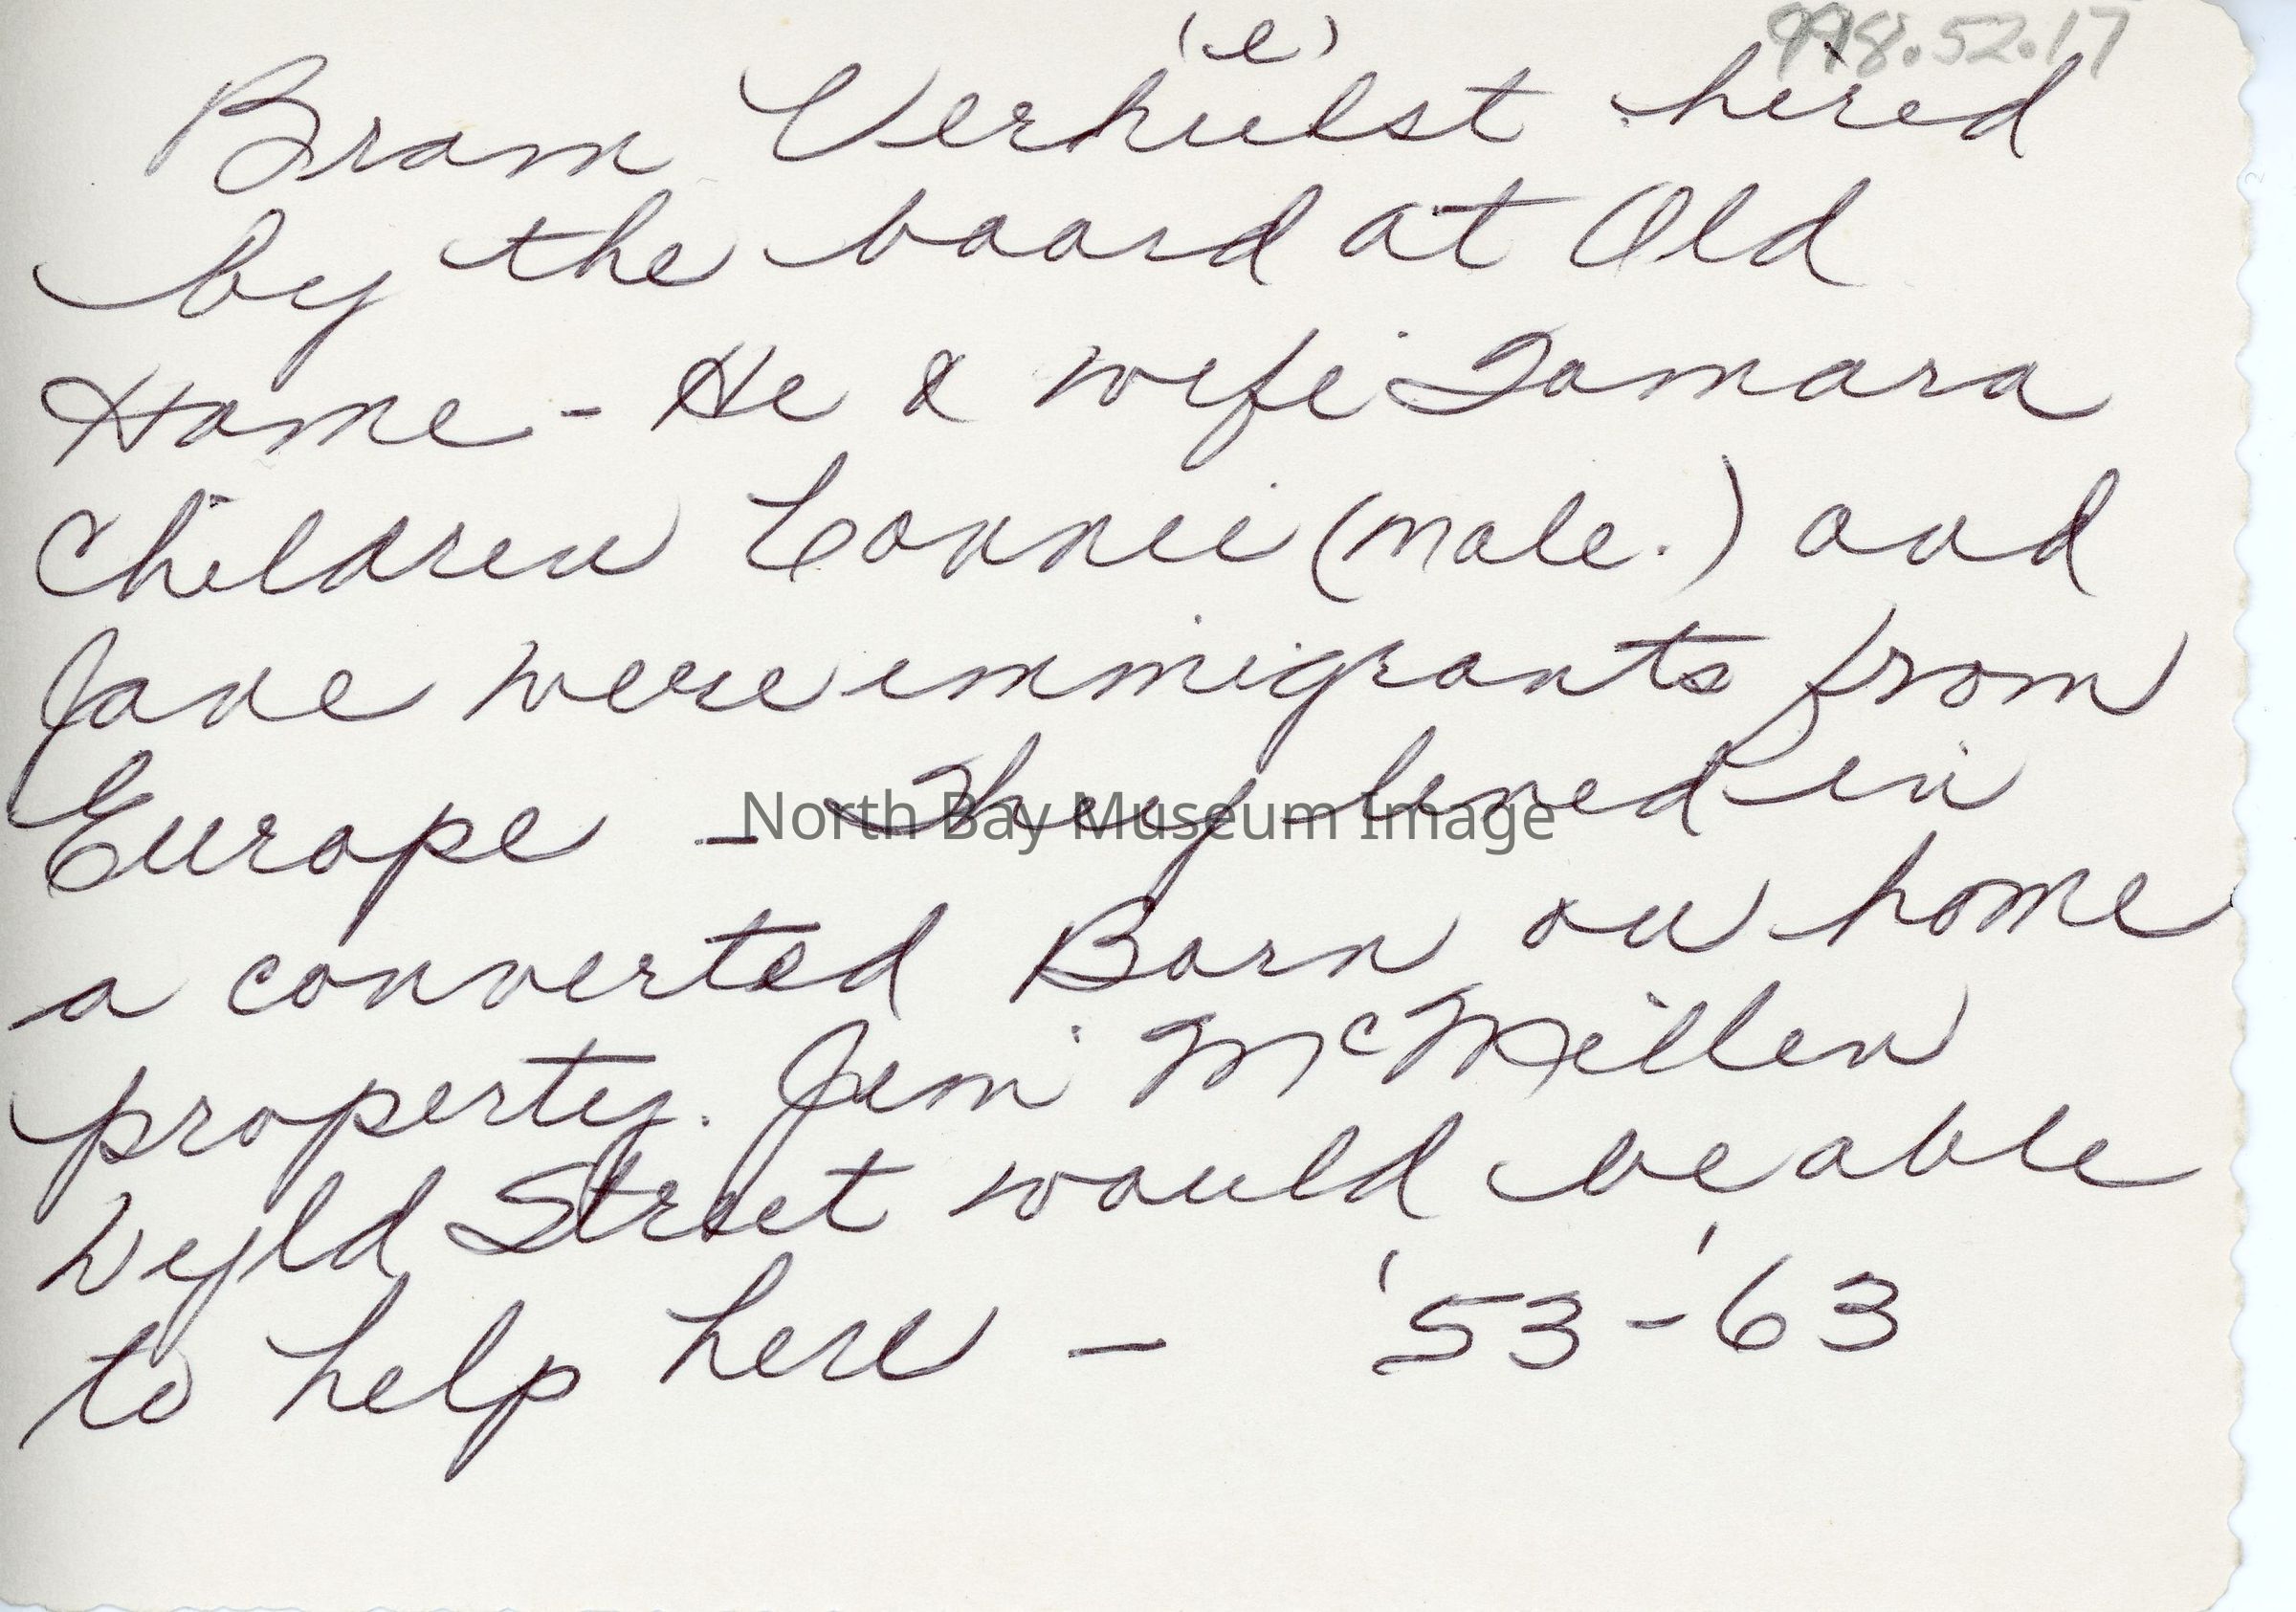 (e) 998.52.17
Bram Verhulst hired
by the board at Old
Home - He & wife Tamara
Children Connie (male.) and
Jane were immigrants from
Europe - They lived in
North Bay Museum Image
a converted Barn on home
property. Jim McMillen
Wyld Street would be able
to help here - '53-'63